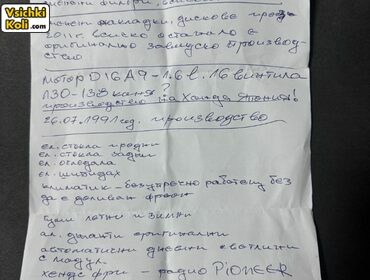 Vsichki
Koli.com
филтри,
накладки, дискове
2011г всичко останало е
оригинално заводско производ
ство
Мотор D16A9 - 1.6 в. 16 винтила
130-138 коня?
производство на Хонда Япония!
26.07.1991 год. производство
ел. стъкла предни
ел. стъкла задни
ел. огледала
ел. шибидах
климатик - безупречно работещ без
да е доливан фреон
гуми летни и зимни
ал. джанти оригинални
автоматични дневни светлини
с модул.
хендс фри - радио PiONEER